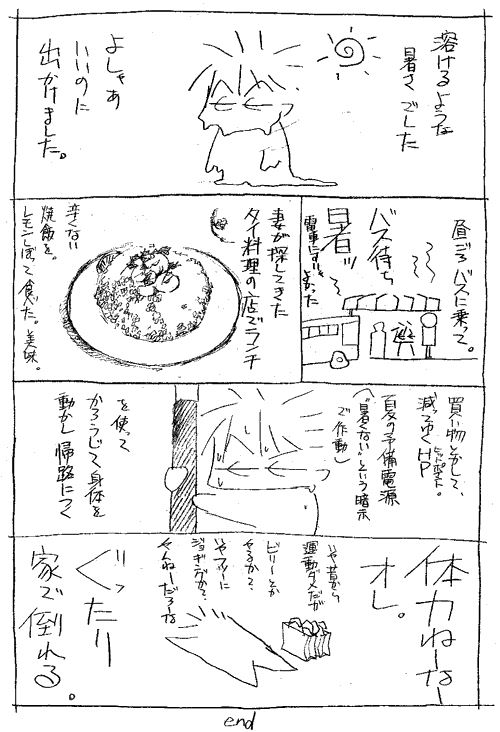 溶けるような
暑さでした
よしゃあ
いいのに
出かけました。
昼ごろバスに乗って。
バス待ち
暑ッ
妻が探してきた
タイ料理の店でランチ
辛くない
焼飯を。
レモンしぼって食べた。美味。
買い物とかして、
減ってゆくHP
ヒットポイント。
夏の予備電源
(“暑くない”という暗示
で作動)
を使って
かろうじて身体を
動かし帰路につく
体力ねーなー
オレ。
いや昔から
運動ダメだが
ビリーとか
やるか?
いやマジに
ジョギングか?
やんねーだろーな
ぐったり
家で倒れる。
end